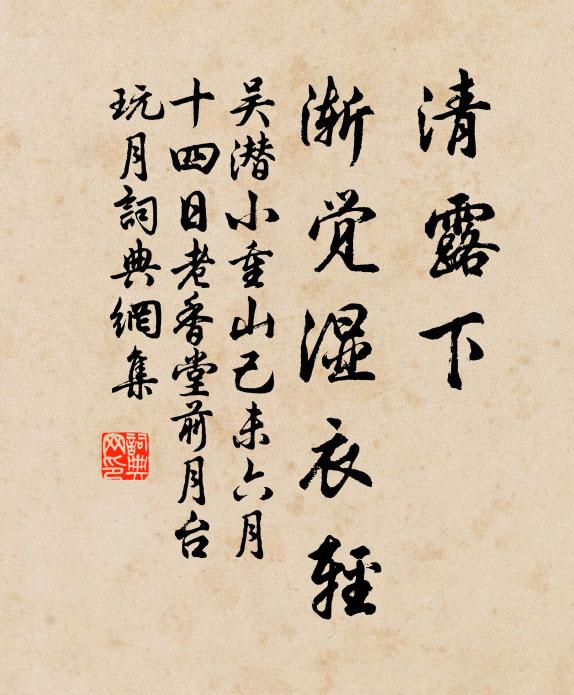 清露下
渐觉湿衣轻
吴潜小重山己未六月
十四日老香堂前月台
玩月詞典網集
詞典
网印